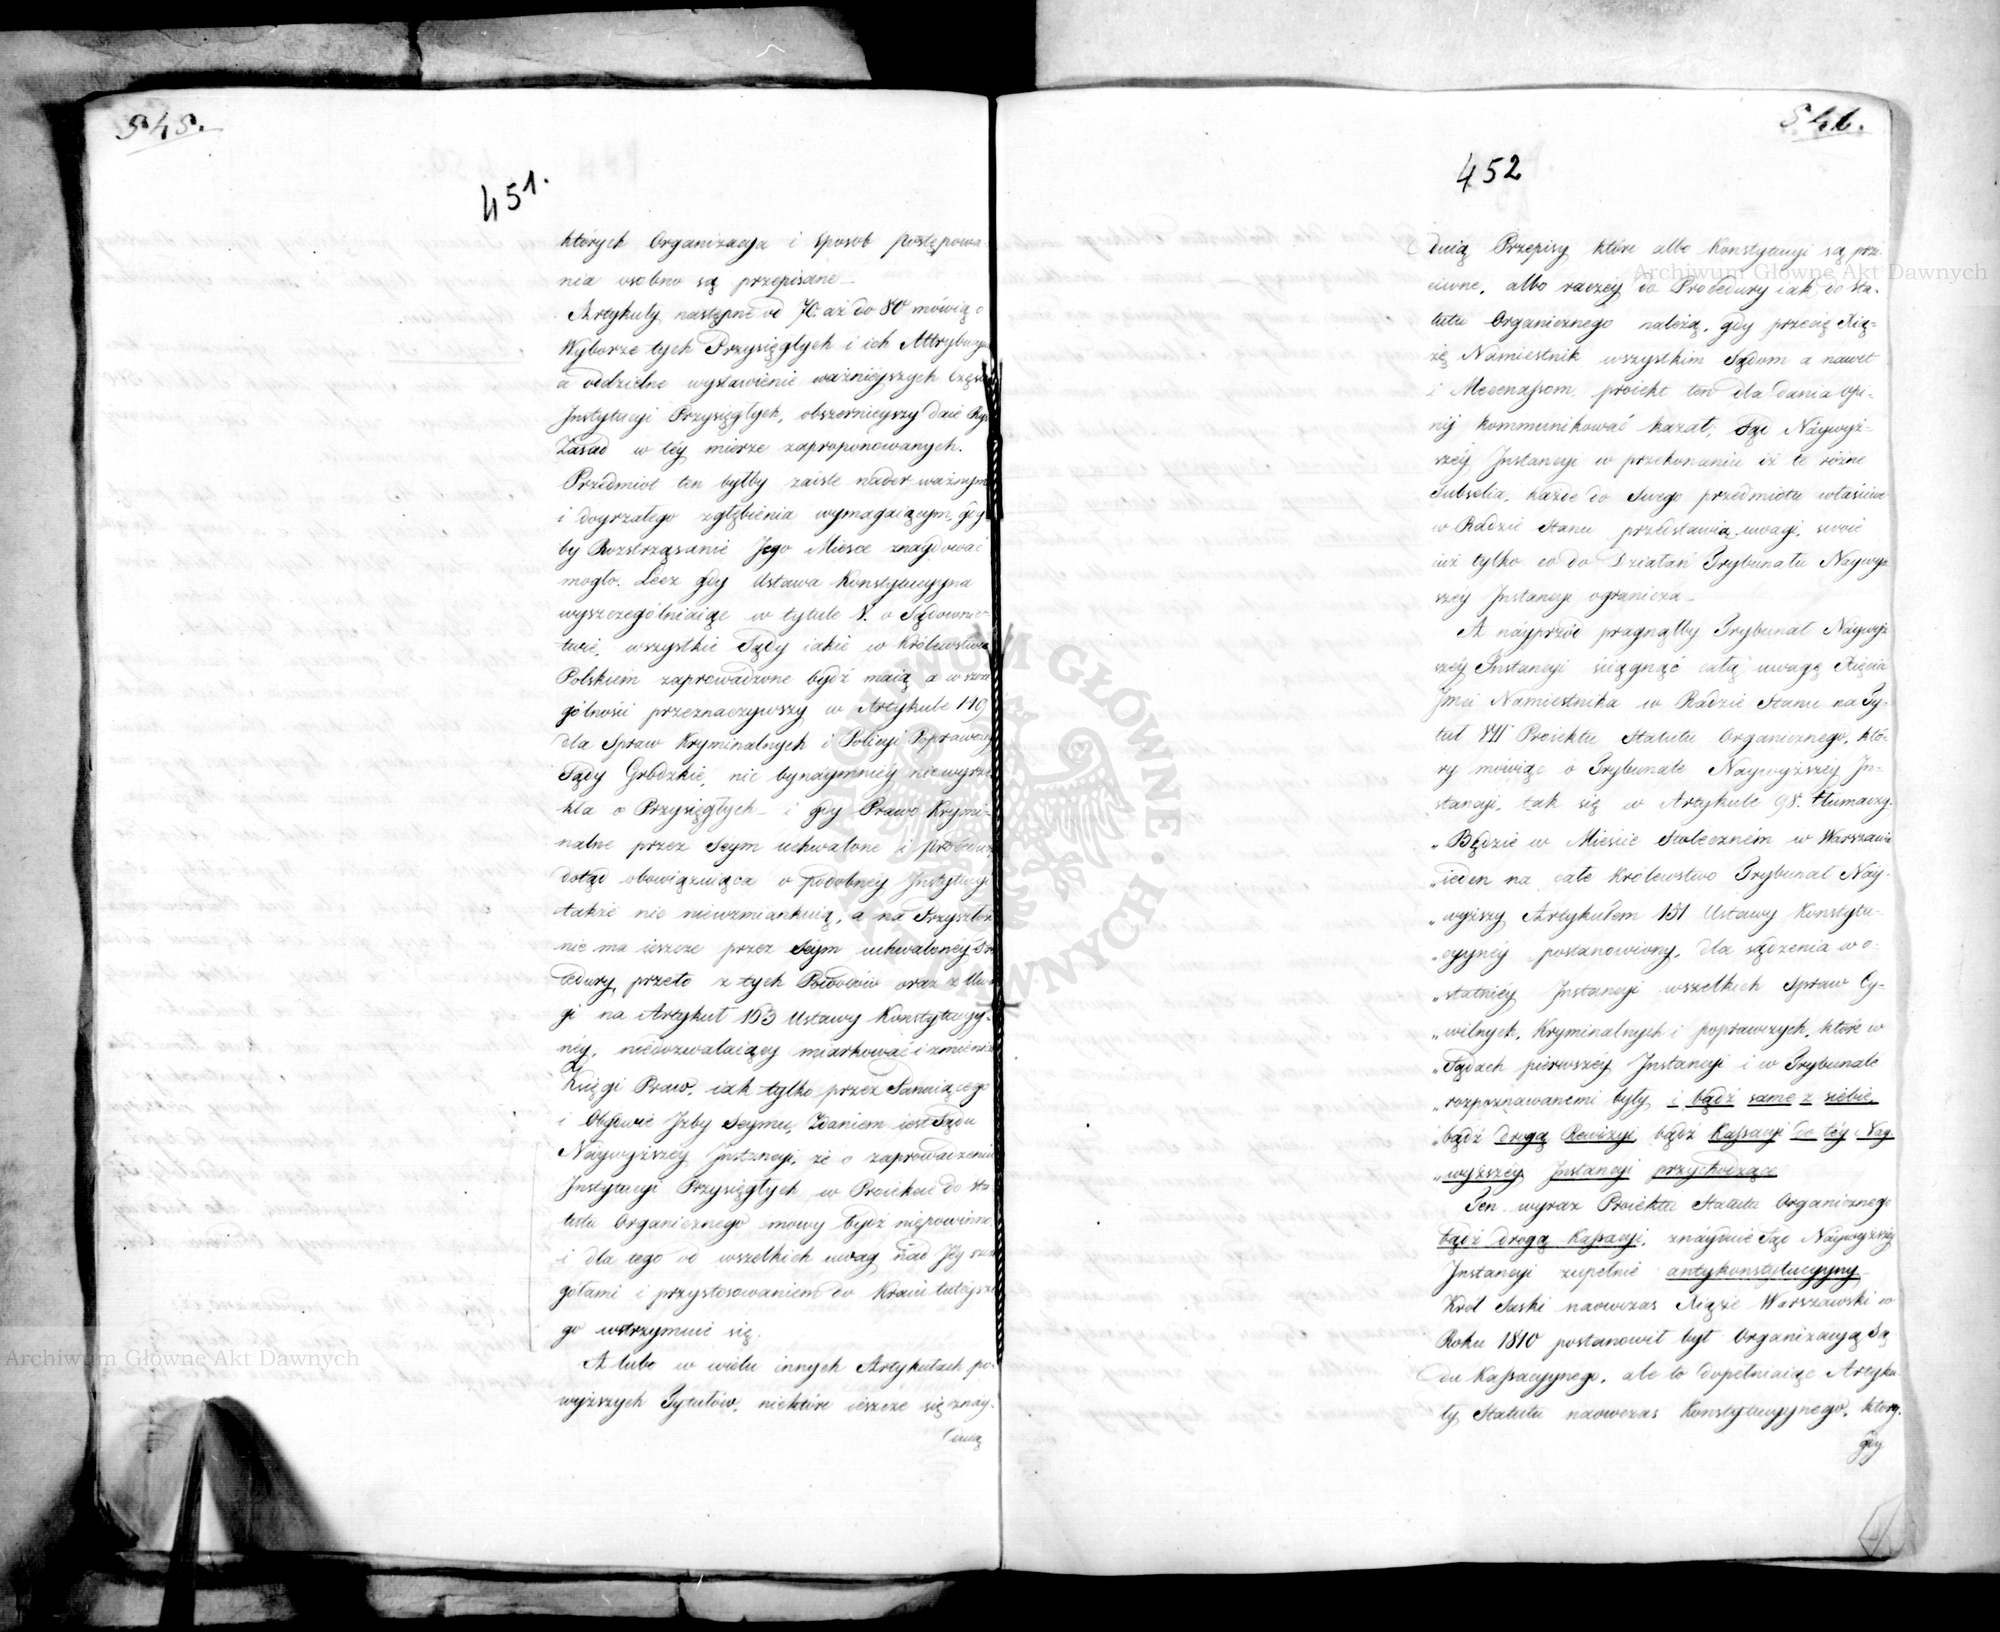 545.
451.
których Organizacya i sposob postępowa-
nia osobno są przepisane_
Artykuły następne od 70. aż do 80 mówią o
Wyborze tych Przysięgłych i ich Attrybucyi
a oddzielne wystawienie ważnieyszych Części
Instytucyi Przysięgłych, obszernieyszy daie Rys
Zasad w téy mierze zaproponowanych.
Przedmiot ten byłby zaiste nader ważnym
i doyrzałego zgłębienia wymagaiącym, gdy
by Rozstrząsanie Jego Miesce znaydować
mogło. Lecz gdy Ustawa Konstytucyyna
wyszczególniaiąc w tytule V. o Sądownic-
twie, wszystkie Sądy iakie w Królewstwie
Polskiem zaprowadzone bydź maią a w szcze
gólności przeznaczywszy w Artykule 149
dla Spraw Kryminalnych i Policyi Poprawczéy
Sądy Grodzkie, nic bynáymniéy niewyrze
kła o Przysięgłych_ i gdy Prawo Krymi-
nalne przez Seym uchwalone i procedura
dotąd obowiązuiąca o podobnéy Instytucyi
także nic niewzmiankuią, a na Przyszłość
nie ma ieszcze przez Seym uchwalonéy Pro
cedury, przeto z tych Powodów oraz z Uwa
gi na Artykuł 163 Ustawy Konstytucyy-
néy, niedozwalaiący miarkować i zmieniać
Księgi Praw, iak tylko przez Panuiącego
i Obydwie Izby Seymu, Zdaniem iest Sądu
Náywyższéy Instancyi, że o zaprowadzeniu
Instytucyi Przysięgłych w Proiekcie do sta
tutu Organicznego mowy bydź niepowinno,
i dla tego od wszelkich uwag nad Jéy szcze
gółami i przystosowaniem do Kraiu tutéysze
go wstrzymuie się.
A lubo w wielu innych Artykułach po-
wyższych Tytułów, niektóre ieszcze się znáy-
duią
546.
452
duią Przepisy które albo Konstytucyi są prze
ciwne, albo raczéy do Procedury iak do sta-
tutu Organicznego należą, gdy przecię Xią-
żę Namiestnik wszystkim Sądom a nawet
i Mecenassom, proiekt ten dla dania opi-
nij kommunikować kazał, Sąd Náywyż-
széy Instancyi w przekonaniu iż te różne
Subselia, każde do Swego przedmiotu właściwe
w Radzie Stanu przedstawią uwagi, swoie
iuż tylko co do Działań Trybunału Naywyż
széy Instancyi ogranicza_
A náyprzód pragnąłby Trybunał Náywyż
széy Instancyi ściągnąć całą uwagę Xięcia
Jmci Namiestnika w Radzie Stanu na Ty-
tuł VII Proiektu Statutu Organicznego, któ-
ry mówiąc o Trybunale Naywyższéy In-
stancyi, tak się w Artykule 98. tłumaczy.
„Będzie w Mieście Stołeczném w Warszawie
„ieden na całe Królewstwo Trybunał Náy-
„wyższy Artykułem 151 Ustawy Konstytu-
„cyynéy postanowiony, dla sądzenia w o-
„statniéy Instancyi wszelkich Spraw Cy-
„wilnych, Kryminalnych i poprawczych, które w
„Sądach pierwszéy Instancyi i w Trybunale
„rozpoznawanemi były i bądź same z siebie,
„bądź drogą Rewizyi bądź Kassacyi do téy Náy
„wyższéy Instancyi przychodzące
Ten wyraz Proiektu Statutu Organicznego
bądź drogą Kassacyi, znáyduie Sąd Náywyższéy
Instancyi zupełnie antykonstytucyyny_
Król Saski naowczas Xiąże Warszawski w
Roku 1810 postanowił był Organizacyą Są
du Kassacyynego, ale to dopełniaiąc Artyku
ły Statutu naowczas Konstytucyynego, który
gdy
Archiwum Główne Akt Dawnych
Archiwum Główne Akt Dawnych
ARCHIWUM GŁÓWNE AKT DAWNYCH